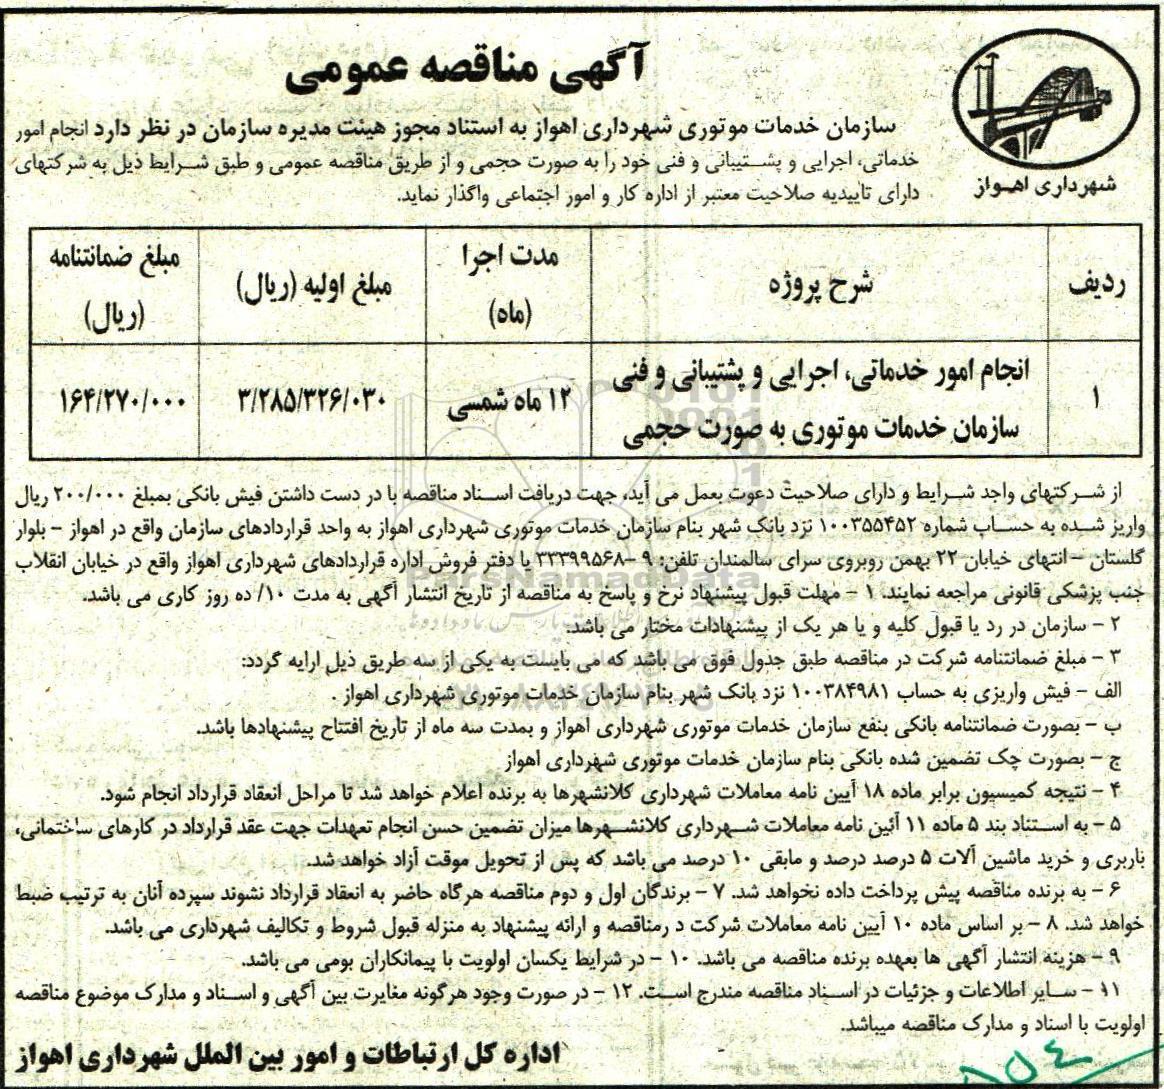 آگهی مناقصه عمومی
شهرداری اهواز
سازمان خدمات موتوری شهرداری اهواز به استناد مجوز هیئت مدیره سازمان در نظر دارد انجام امور
خدماتی، اجرایی و پشتیبانی و فنی خود را به صورت حجمی و از طریق مناقصه عمومی و طبق شرایط ذیل به شرکتهای
دارای تاییدیه صلاحیت معتبر از اداره کار و امور اجتماعی واگذار نماید.
ردیف
شرح پروژه
مدت اجرا
(ماه)
مبلغ اولیه (ریال)
مبلغ ضمانتنامه
(ریال)
۱
انجام امور خدماتی، اجرایی و پشتیبانی و فنی
سازمان خدمات موتوری به صورت حجمی
۱۲ ماه شمسی
۳/۲۸۵/۳۲۶/۰۳۰
۱۶۴/۲۷۰/۰۰۰
از شرکتهای واجد شرایط و دارای صلاحیت دعوت بعمل می آید، جهت دریافت اسناد مناقصه با در دست داشتن فیش بانکی بمبلغ ۲۰۰/۰۰۰ ریال
واریز شده به حساب شماره ۱۰۰۳۵۵۴۵۲ نزد بانک شهر بنام سازمان خدمات موتوری شهرداری اهواز به واحد قراردادهای سازمان واقع در اهواز – بلوار
گلستان – انتهای خیابان ۲۲ بهمن روبروی سرای سالمندان تلفن: ۹ –۳۳۳۹۹۵۶۸ یا دفتر فروش اداره قراردادهای شهرداری اهواز واقع در خیابان انقلاب
جنب پزشکی قانونی مراجعه نمایند. ۱ – مهلت قبول پیشنهاد نرخ و پاسخ به مناقصه از تاریخ انتشار آگهی به مدت ۱۰/ ده روز کاری می باشد.
۲ – سازمان در رد یا قبول کلیه و یا هر یک از پیشنهادات مختار می باشد.
۳ – مبلغ ضمانتنامه شرکت در مناقصه طبق جدول فوق می باشد که می بایست به یکی از سه طریق ذیل ارایه گردد:
الف – فیش واریزی به حساب ۱۰۰۳۸۴۹۸۱ نزد بانک شهر بنام سازمان خدمات موتوری شهرداری اهواز .
ب – بصورت ضمانتنامه بانکی بنفع سازمان خدمات موتوری شهرداری اهواز و بمدت سه ماه از تاریخ افتتاح پیشنهادها باشد.
ج – بصورت چک تضمین شده بانکی بنام سازمان خدمات موتوری شهرداری اهواز
۴ – نتیجه کمیسیون برابر ماده ۱۸ آیین نامه معاملات شهرداری کلانشهرها به برنده اعلام خواهد شد تا مراحل انعقاد قرارداد انجام شود.
۵ – به استناد بند ۵ ماده ۱۱ آئین نامه معاملات شهرداری کلانشهرها میزان تضمین حسن انجام تعهدات جهت عقد قرارداد در کارهای ساختمانی،
باربری و خرید ماشین آلات ۵ درصد درصد و مابقی ۱۰ درصد می باشد که پس از تحویل موقت آزاد خواهد شد.
۶ – به برنده مناقصه پیش پرداخت داده نخواهد شد. ۷ – برندگان اول و دوم مناقصه هرگاه حاضر به انعقاد قرارداد نشوند سپرده آنان به ترتیب ضبط
خواهد شد. ۸ – بر اساس ماده ۱۰ آیین نامه معاملات شرکت د رمناقصه و ارائه پیشنهاد به منزله قبول شروط و تکالیف شهرداری می باشد.
۹ – هزینه انتشار آگهی ها بعهده برنده مناقصه می باشد. ۱۰ – در شرایط یکسان اولویت با پیمانکاران بومی می باشد.
۱۱ – سایر اطلاعات و جزئیات در اسناد مناقصه مندرج است. ۱۲ – در صورت وجود هرگونه مغایرت بین آگهی و اسناد و مدارک موضوع مناقصه
اولویت با اسناد و مدارک مناقصه میباشد.
اداره کل ارتباطات و امور بین الملل شهرداری اهواز
ParsNamadData